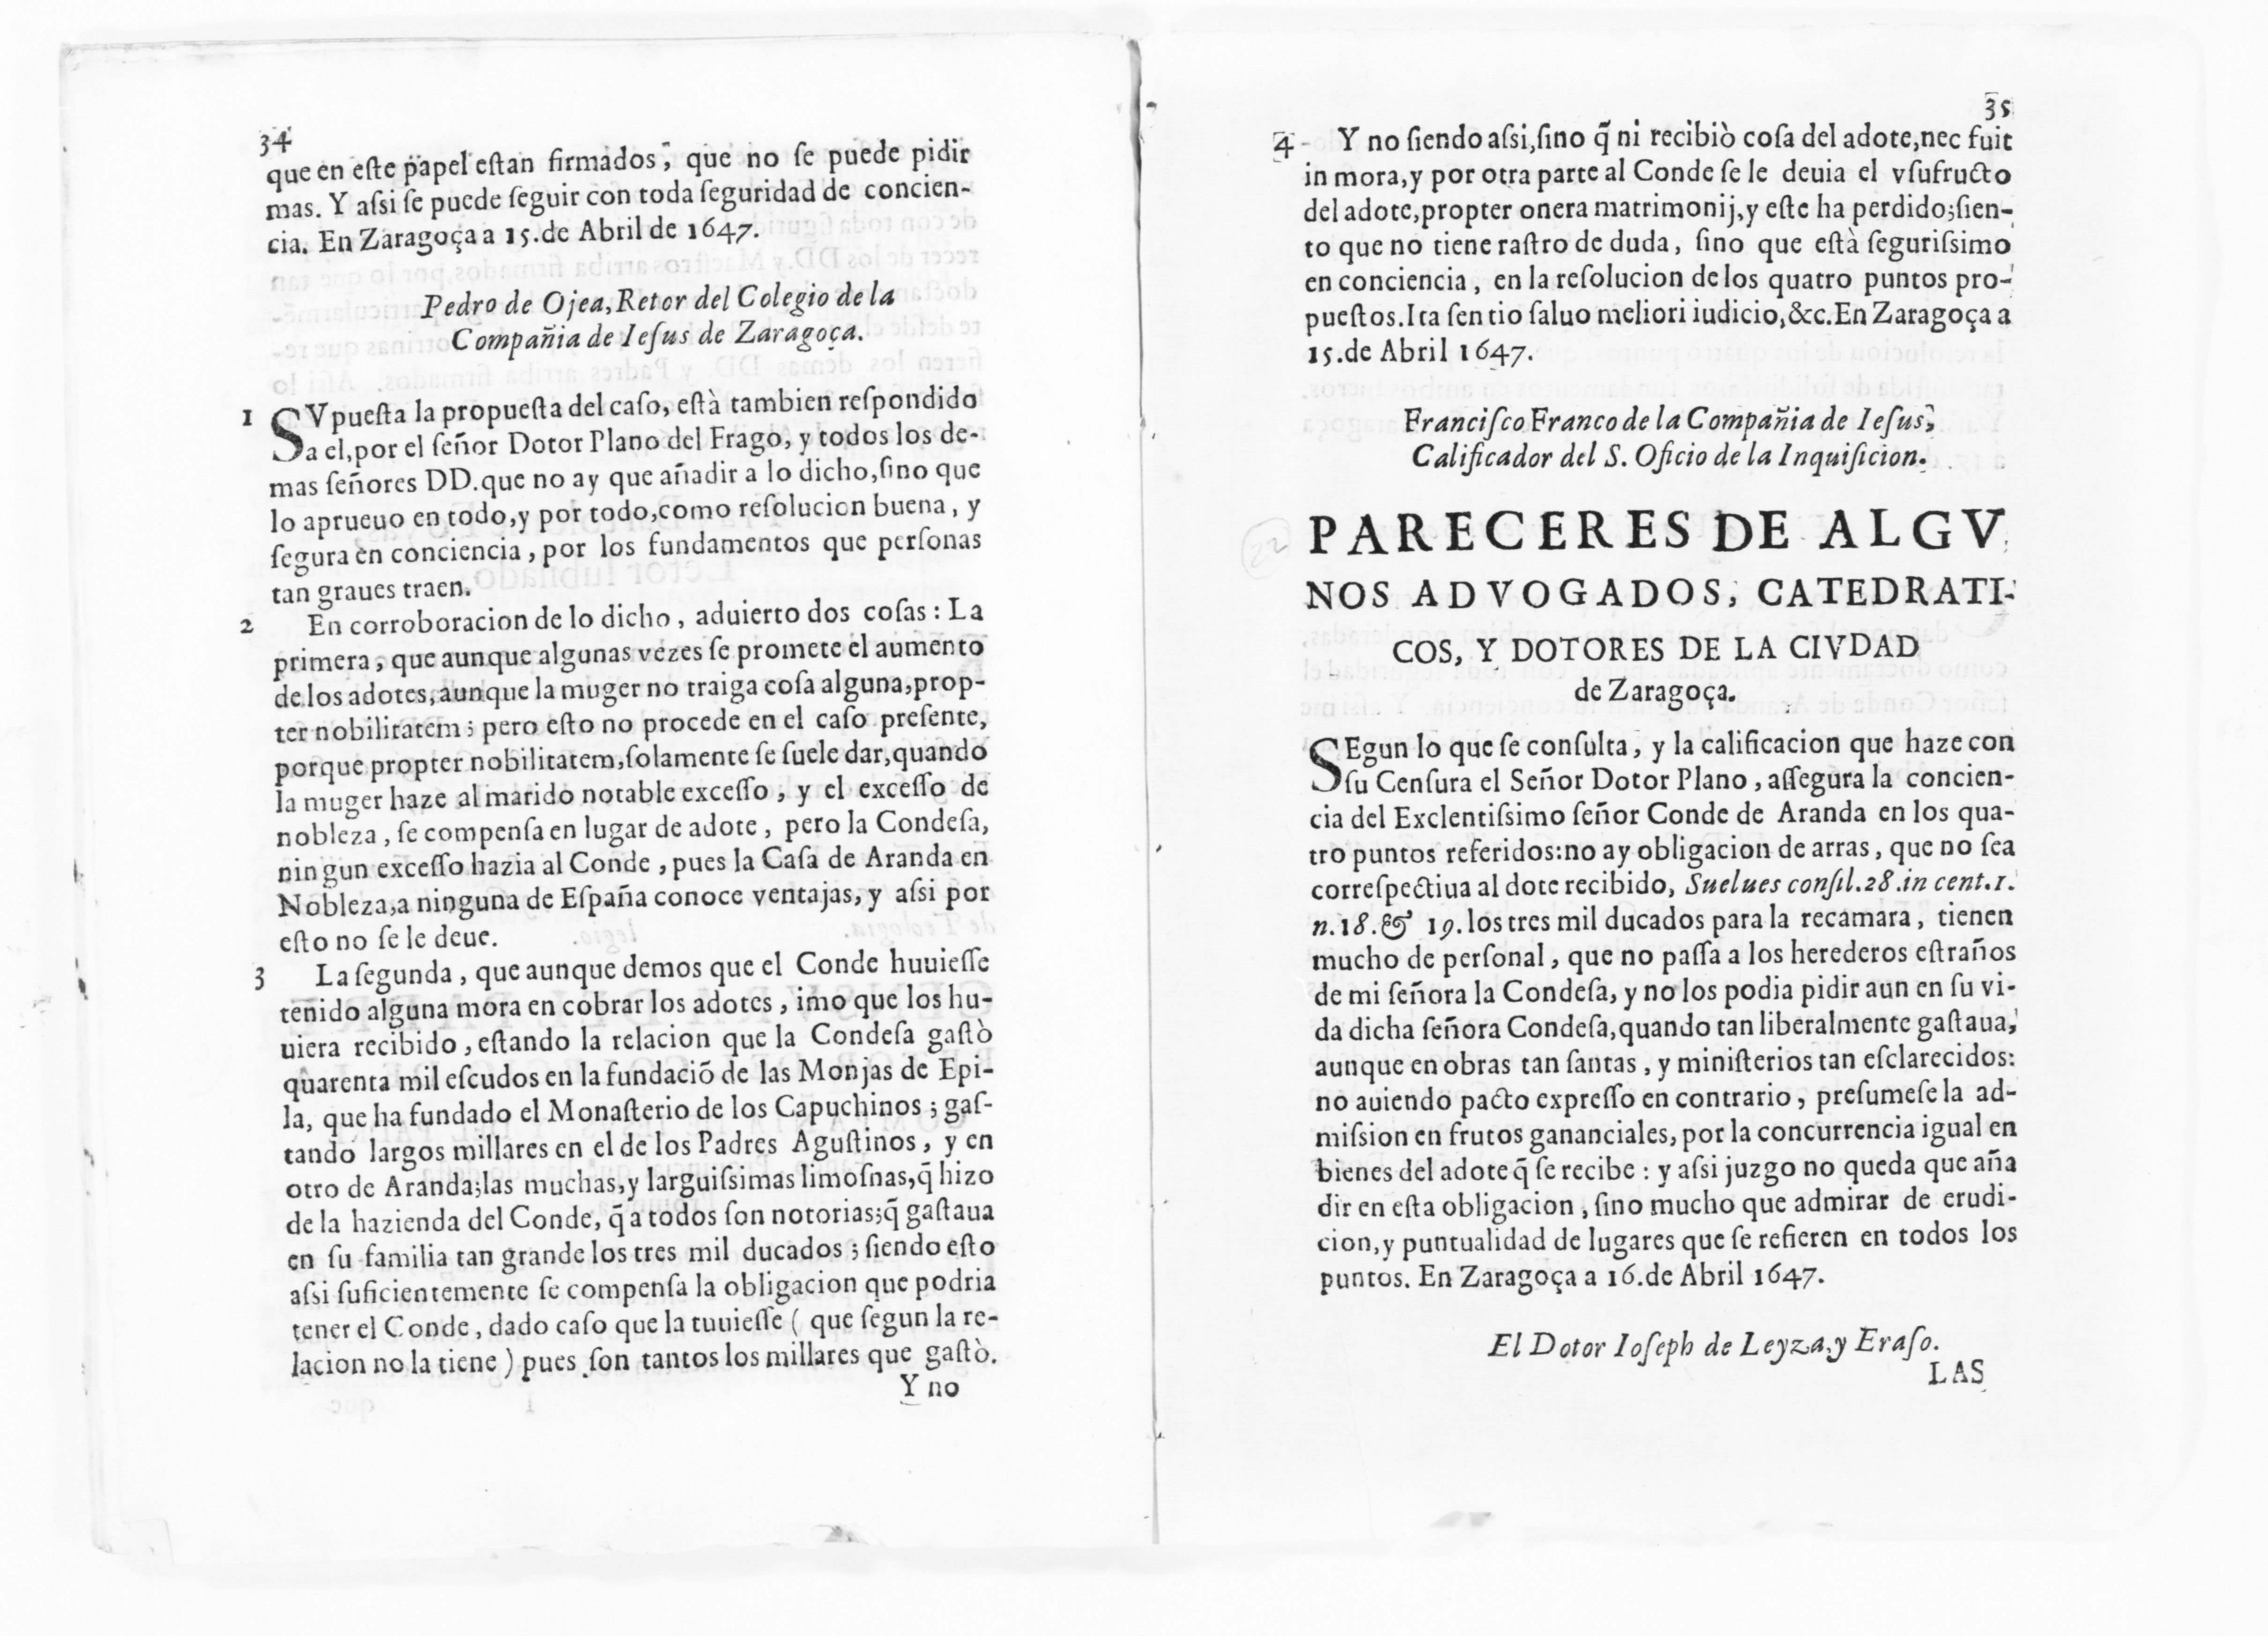 34
que en eſte papel eſtan firmados, que no ſe puede pidir
mas. Y aſsi ſe puede ſeguir con toda ſeguridad de concien-
cia. En Zaragoça a 15.de Abril de 1647.
Pedro de Ojea, Retor del Colegio de la
Compañia de Ieſus de Zaragoça.
1 SVpueſta la propueſta del caſo, eſtà tambien reſpondido
a el, por el ſeñor Dotor Plano del Frago, y todos los de-
mas ſeñores DD. que no ay que añadir a lo dicho, ſino que
lo aprueuo en todo, y por todo, como reſolucion buena, y
ſegura en conciencia, por los fundamentos que perſonas
tan graues traen.
2 En corroboracion de lo dicho, aduierto dos coſas: La
primera, que aunque algunas vezes ſe promete el aumento
de los adotes, aunque la muger no traiga coſa alguna, prop-
ter nobilitatem; pero eſto no procede en el caſo preſente,
porque propter nobilitatem, ſolamente ſe ſuele dar, quando
la muger haze al marido notable exceſſo, y el exceſſo de
nobleza, ſe compenſa en lugar de adote, pero la Condeſa,
ningun exceſſo hazia al Conde, pues la Caſa de Aranda en
Nobleza, a ninguna de Eſpaña conoce ventajas, y aſsi por
eſto no ſe le deue.
3 La ſegunda, que aunque demos que el Conde huuieſſe
tenido alguna mora en cobrar los adotes, imo que los hu-
uiera recibido, eſtando la relacion que la Condeſa gaſtò
quarenta mil eſcudos en la fundaciõ de las Monjas de Epi-
la, que ha fundado el Monaſterio de los Capuchinos; gaſ-
tando largos millares en el de los Padres Aguſtinos, y en
otro de Aranda; las muchas, y larguiſsimas limoſnas, q̃ hizo
de la hazienda del Conde, q̃ a todos ſon notorias; q̃ gaſtaua
en ſu familia tan grande los tres mil ducados; ſiendo eſto
aſsi ſuficientemente ſe compenſa la obligacion que podria
tener el Conde, dado caſo que la tuuieſſe ( que ſegun la re-
lacion no la tiene ) pues ſon tantos los millares que gaſtò.
Y no
35
4 Y no ſiendo aſsi, ſino q̃ ni recibiò coſa del adote, nec fuit
in mora, y por otra parte al Conde ſe le deuia el vſufructo
del adote, propter onera matrimonij, y eſte ha perdido; ſien-
to que no tiene raſtro de duda, ſino que eſtà ſeguriſsimo
en conciencia, en la reſolucion de los quatro puntos pro-
pueſtos. Ita ſentio ſaluo meliori iudicio, &c. En Zaragoça a
15.de Abril 1647.
Franciſco Franco de la Compañia de Ieſus,
Calificador del S. Oficio de la Inquiſicion.
22
PARECERES DE ALGV
NOS ADVOGADOS, CATEDRATI-
COS, Y DOTORES DE LA CIVDAD
de Zaragoça.
SEgun lo que ſe conſulta, y la calificacion que haze con
ſu Cenſura el Señor Dotor Plano, aſſegura la concien-
cia del Exclentiſsimo ſeñor Conde de Aranda en los qua-
tro puntos referidos: no ay obligacion de arras, que no ſea
correſpectiua al dote recibido, Suelues conſil.28.in cent.1.
n.18.& 19. los tres mil ducados para la recamara, tienen
mucho de perſonal, que no paſſa a los herederos eſtraños
de mi ſeñora la Condeſa, y no los podia pidir aun en ſu vi-
da dicha ſeñora Condeſa, quando tan liberalmente gaſtaua,
aunque en obras tan ſantas, y miniſterios tan eſclarecidos:
no auiendo pacto expreſſo en contrario, preſumeſe la ad-
miſsion en frutos gananciales, por la concurrencia igual en
bienes del adote q̃ ſe recibe: y aſsi juzgo no queda que aña
dir en eſta obligacion, ſino mucho que admirar de erudi-
cion, y puntualidad de lugares que ſe refieren en todos los
puntos. En Zaragoça a 16.de Abril 1647.
El Dotor Ioſeph de Leyza, y Eraſo.
LAS